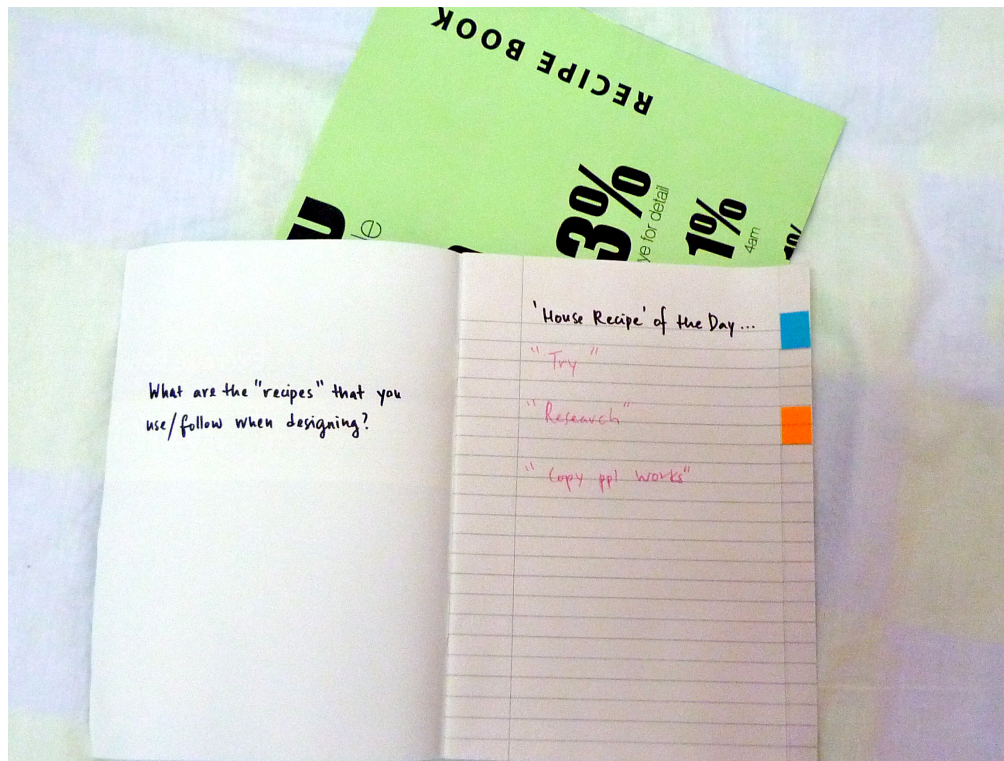 RECIPE BOOK
3%
ye for detail
1%
4am
What are the "recipes" that you
use/follow when designing?
'House Recipe' of the Day...
"Try"
"Research"
"Copy ppl works"